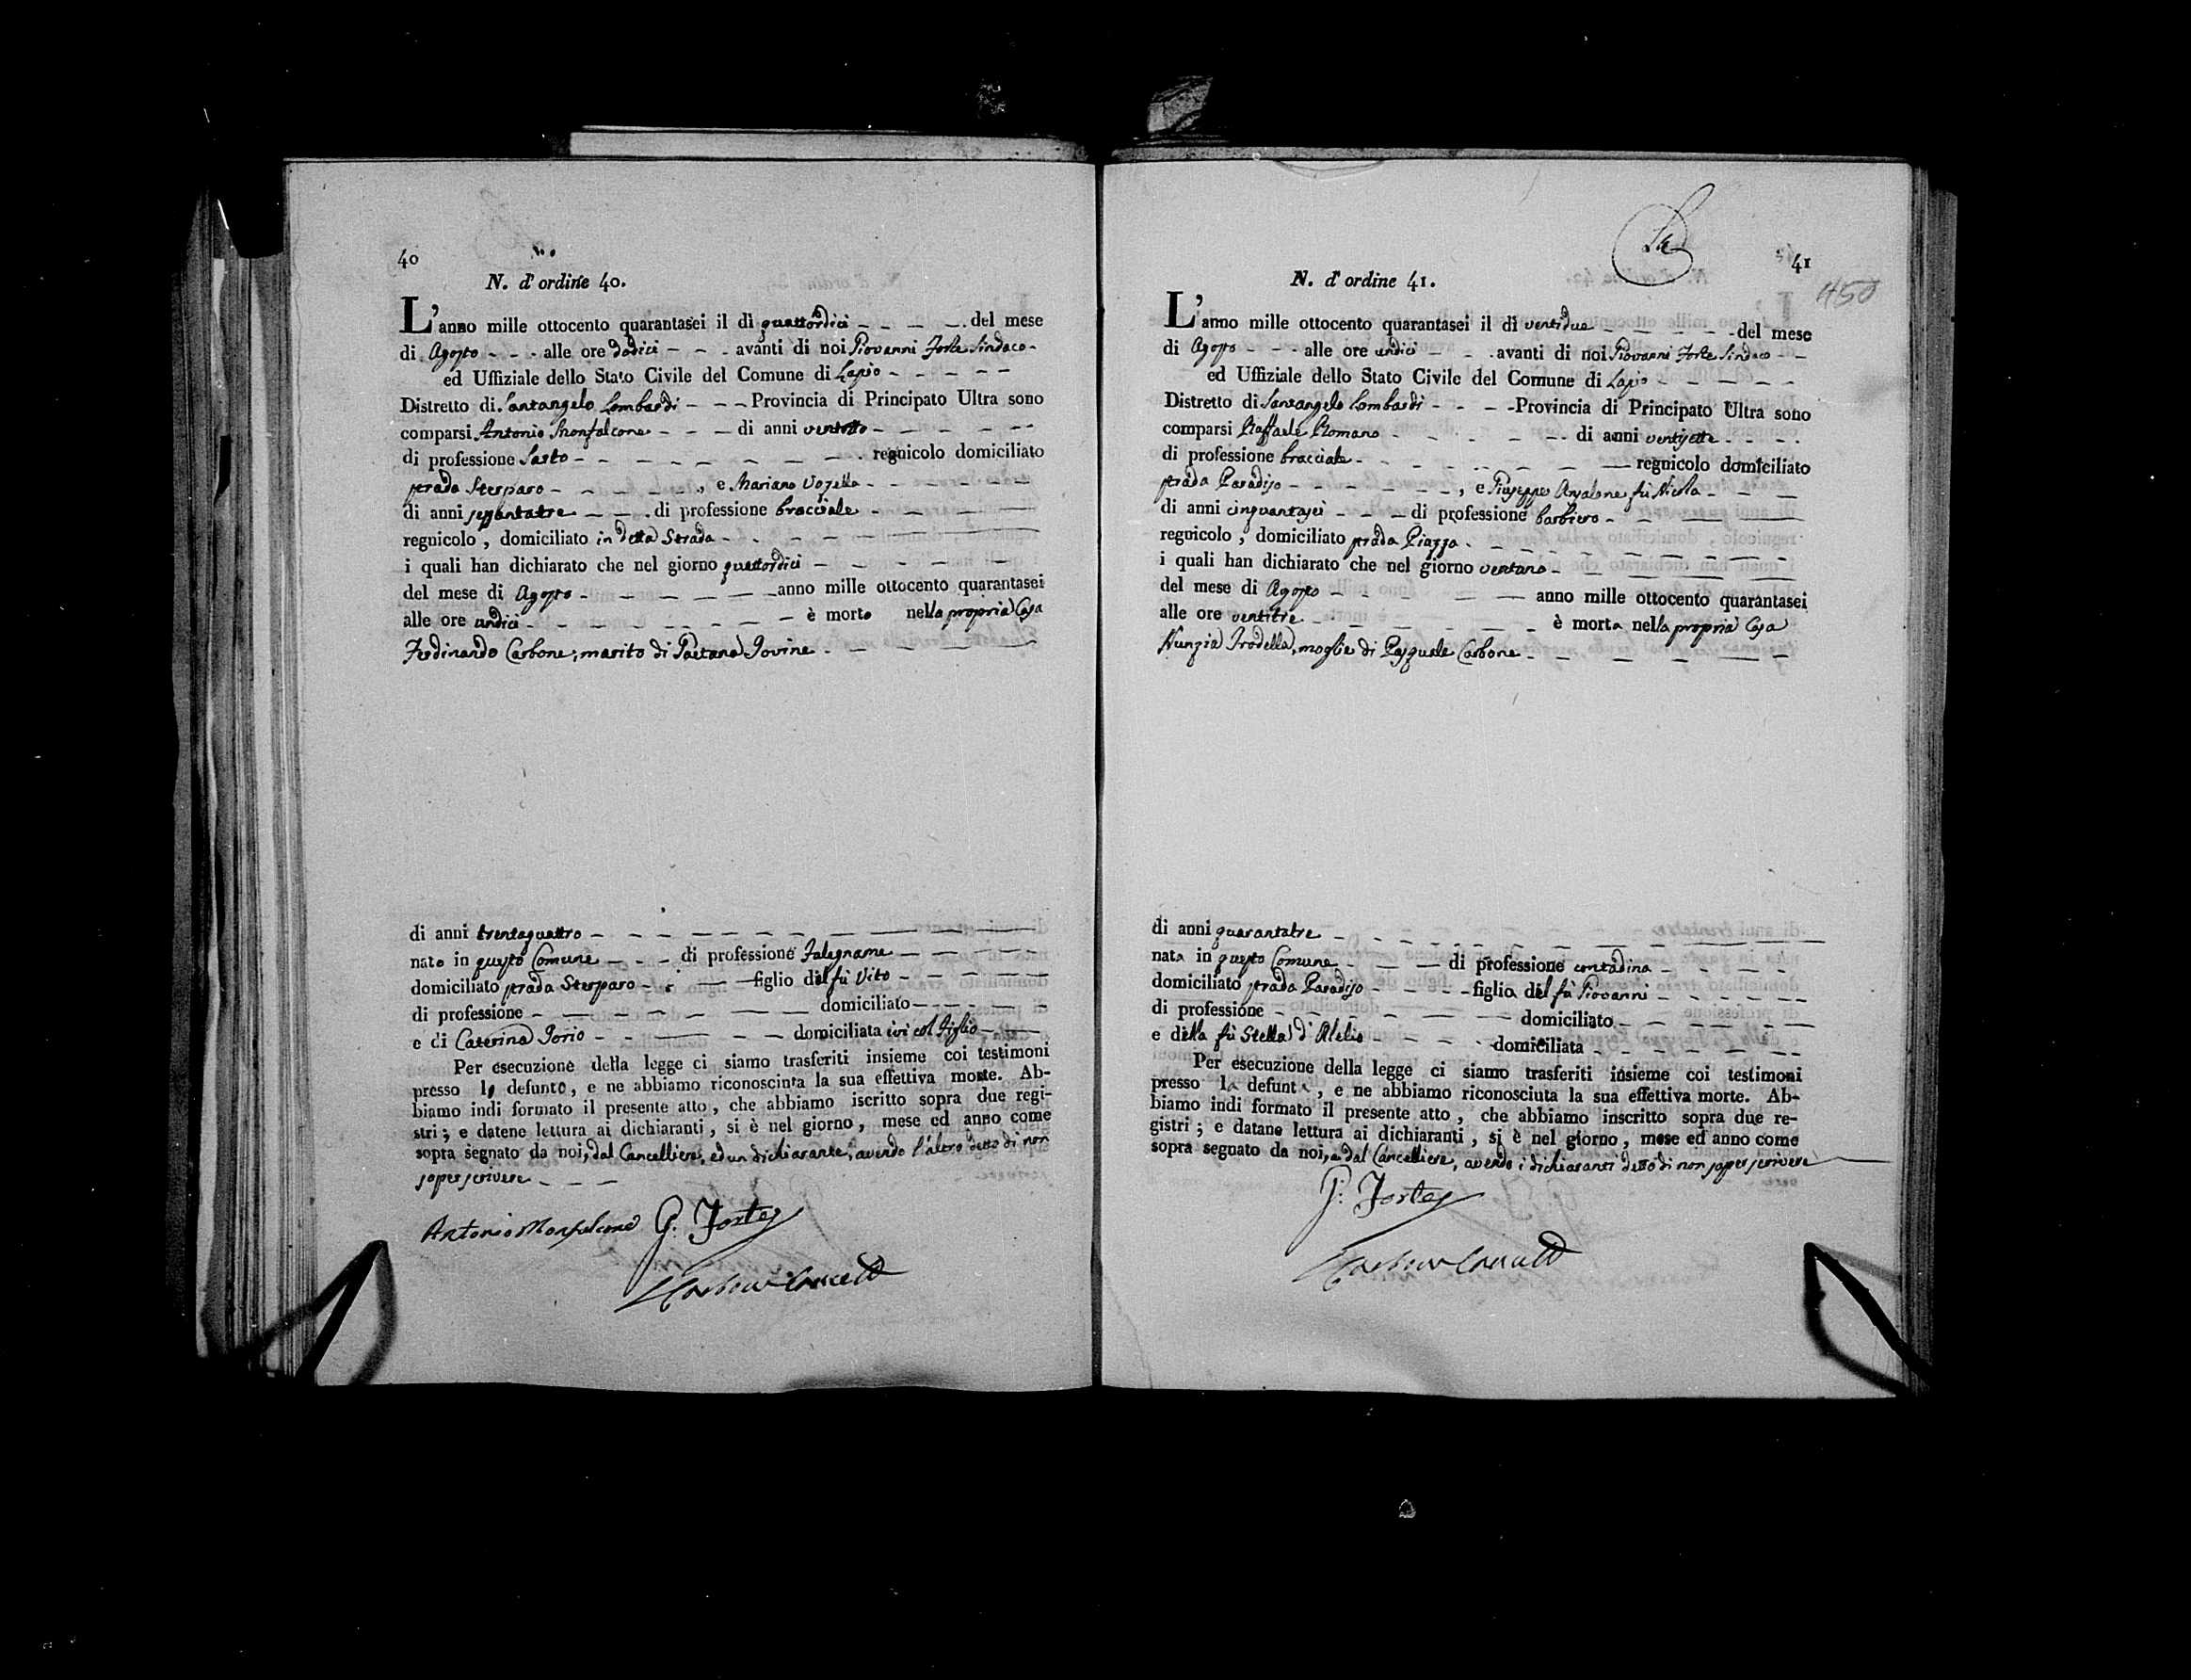 40
N. d'ordine 40.
L'anno mille ottocento quarantasei il dì quattordici del mese
di Agosto alle ore dodici avanti di noi Giovanni Forte Sindaco
ed Uffiziale dello Stato Civile del Comune di Lapio
Distretto di Santangelo Lombardi Provincia di Principato Ultra sono
comparsi Antonio Monfalcone di anni ventotto
di professione Sarto regnicolo domiciliato
strada Sterparo, e Mariano Vozella
di anni sessantatre di professione bracciale
regnicolo, domiciliato in detta Strada
i quali han dichiarato che nel giorno quattordici
del mese di Agosto anno mille ottocento quarantasei
alle ore undici è morto nella propria Casa
Ferdinando Carbone, marito di Gaetana Iovine
di anni trentaquattro
nato in questo Comune di professione Falegname
domiciliato strada Sterparo figlio del fù Vito
di professione domiciliato
e di Caterina Iorio domiciliata ivi col figlio
Per esecuzione della legge ci siamo trasferiti insieme coi testimoni
presso lo defunto, e ne abbiamo riconosciuta la sua effettiva morte. Ab-
biamo indi formato il presente atto, che abbiamo iscritto sopra due regi-
stri; e datene lettura ai dichiaranti, si è nel giorno, mese ed anno come
sopra segnato da noi, dal Cancelliere, ed un dichiarante, avendo l'altro detto di non
saper scrivere
Antonio Monfalcone G. Forte
41
450
N. d'ordine 41.
L'anno mille ottocento quarantasei il dì ventidue del mese
di Agosto alle ore undici avanti di noi Giovanni Forte Sindaco
ed Uffiziale dello Stato Civile del Comune di Lapio
Distretto di Santangelo Lombardi Provincia di Principato Ultra sono
comparsi Raffaele Romano di anni ventisette
di professione bracciale regnicolo domiciliato
strada Paradiso, e Giuseppe Anzalone fù Nicola
di anni cinquantasei di professione barbiero
regnicolo, domiciliato strada Piazza
i quali han dichiarato che nel giorno ventuno
del mese di Agosto anno mille ottocento quarantasei
alle ore ventitre è morta nella propria Casa
Nunzia Trodella, moglie di Pasquale Carbone
di anni quarantatre
nata in questo Comune di professione contadina
domiciliato strada Paradiso figlia del fù Giovanni
di professione domiciliato
e della fù Stella d'Alelio domiciliata
Per esecuzione della legge ci siamo trasferiti insieme coi testimoni
presso la defunta, e ne abbiamo riconosciuta la sua effettiva morte. Ab-
biamo indi formato il presente atto, che abbiamo inscritto sopra due re-
gistri; e datane lettura ai dichiaranti, si è nel giorno, mese ed anno come
sopra segnato da noi, e dal Cancelliere, avendo i dichiaranti detto di non saper scrivere
G. Forte